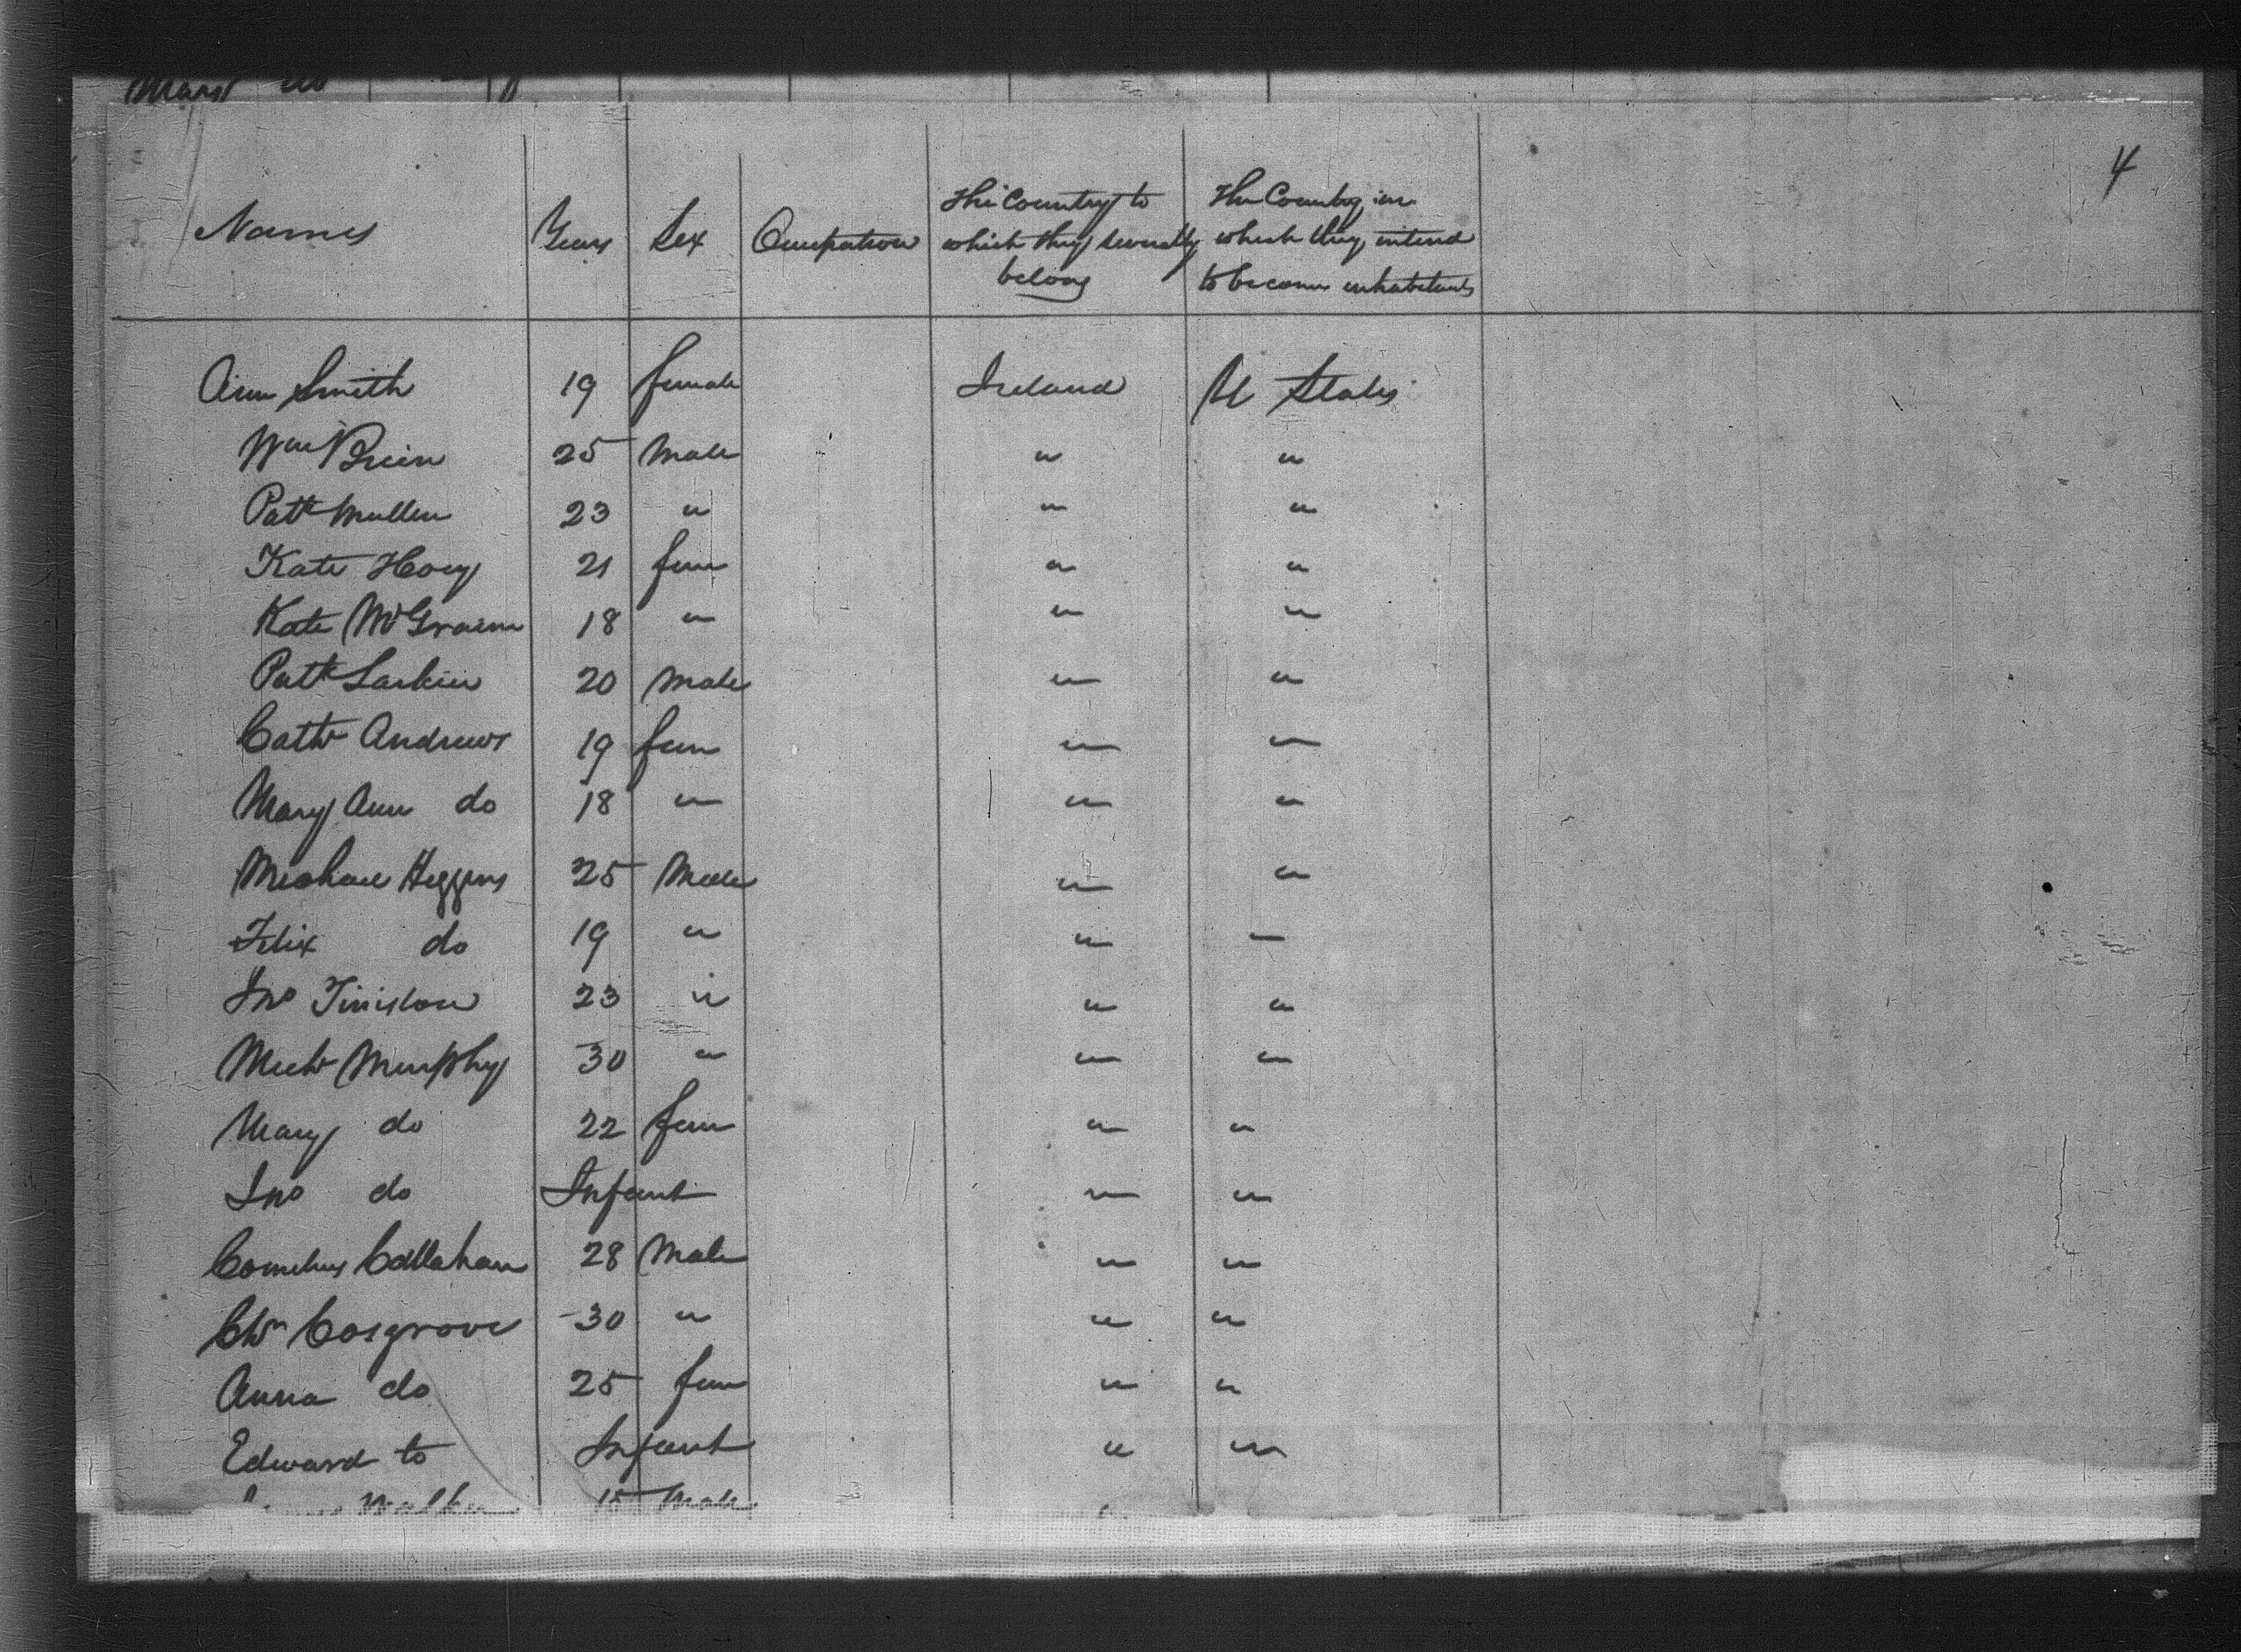 Mary do
4
Names Years Sex Occupation The Country to which they severally belong The Country in which they intend to become inhabitants
Ann Smith 19 female Ireland U States
Wm Brien 25 Male " "
Patk Mullen 23 " " "
Kate Hoey 21 fem " "
Kate McGraine 18 " " "
Patk Larkin 20 Male " "
Cath Andrews 19 fem " "
Mary Ann do 18 " " "
Michael Higgins 25 Male " "
Felix do 19 " " "
Jno 23 " " "
Mich Murphy 30 " " "
Mary do 22 fem " "
Jno do Infant " "
Cornelius Callahan 28 Male " "
Chr Cosgrove 30 " " "
Anna do 25 fem " "
Edward do Infant " "
Walker 15 Male "